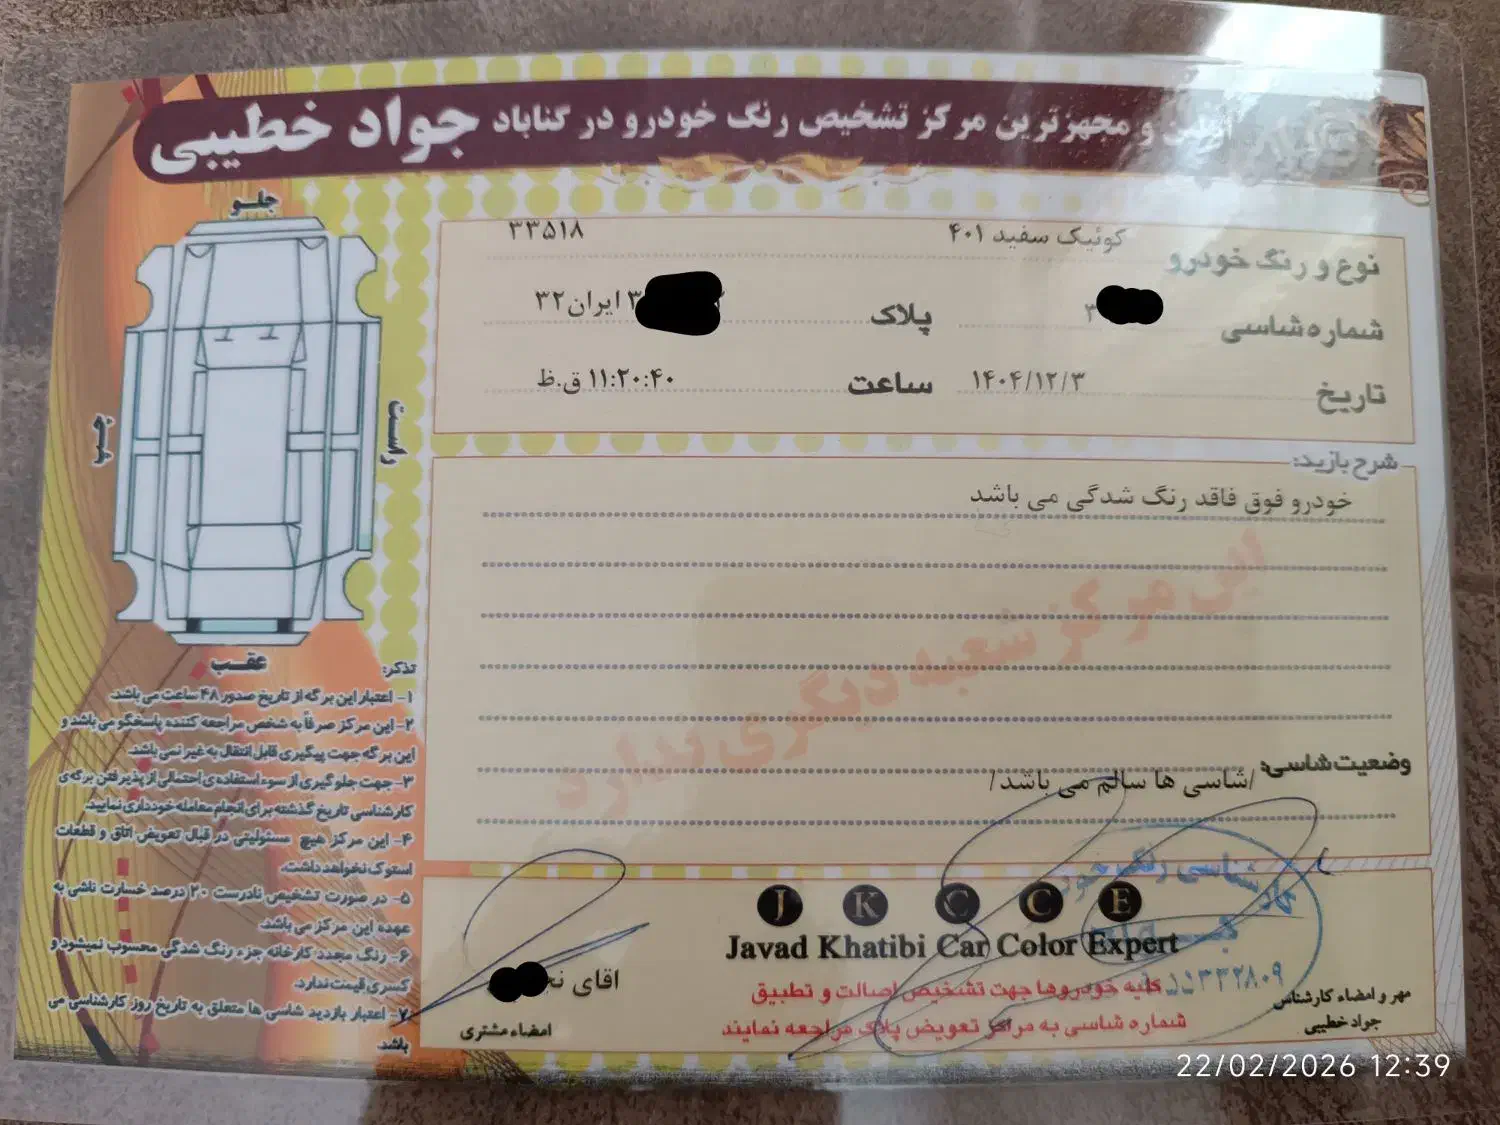 اولین و مجهزترین مرکز تشخیص رنگ خودرو در گناباد جواد خطیبی
جلو
چپ
راست
عقب
نوع و رنگ خودرو کوئیک سفید ۴۰۱ ۳۳۵۱۸
شماره شاسی ۳ پلاک ۳ ایران۳۲
تاریخ ۱۴۰۴/۱۲/۳ ساعت ۱۱:۲۰:۴۰ ق.ظ
شرح بازدید:
خودرو فوق فاقد رنگ شدگی می باشد
این مرکز شعبه دیگری ندارد
وضعیت شاسی: /شاسی ها سالم می باشد/
تذکر:
۱- اعتبار این برگه از تاریخ صدور ۴۸ ساعت می باشد.
۲- این مرکز صرفاً به شخص مراجعه کننده پاسخگو می باشد و
این برگه جهت پیگیری قابل انتقال به غیر نمی باشد.
۳- جهت جلوگیری از سوء استفاده ی احتمالی از پذیرفتن برگه ی
کارشناسی تاریخ گذشته برای انجام معامله خودداری نمایید.
۴- این مرکز هیچ مسئولیتی در قبال تعویض اتاق و قطعات
استوک نخواهد داشت.
۵- در صورت تشخیص نادرست ۲۰ درصد خسارت ناشی به
عهده این مرکز می باشد.
۶- رنگ مجدد کارخانه جزء رنگ شدگی محسوب نمیشود و
کسری قیمت ندارد.
۷- اعتبار بازدید شاسی ها متعلق به تاریخ روز کارشناسی می
باشد.
J K C C E
Javad Khatibi Car Color Expert
کلیه خودروها جهت تشخیص اصالت و تطبیق
شماره شاسی به مراکز تعویض پلاک مراجعه نمایند
کارشناسی رنگ خودرو
مهر و امضاء کارشناس
جواد خطیبی
اقای نج
امضاء مشتری
22/02/2026 12:39